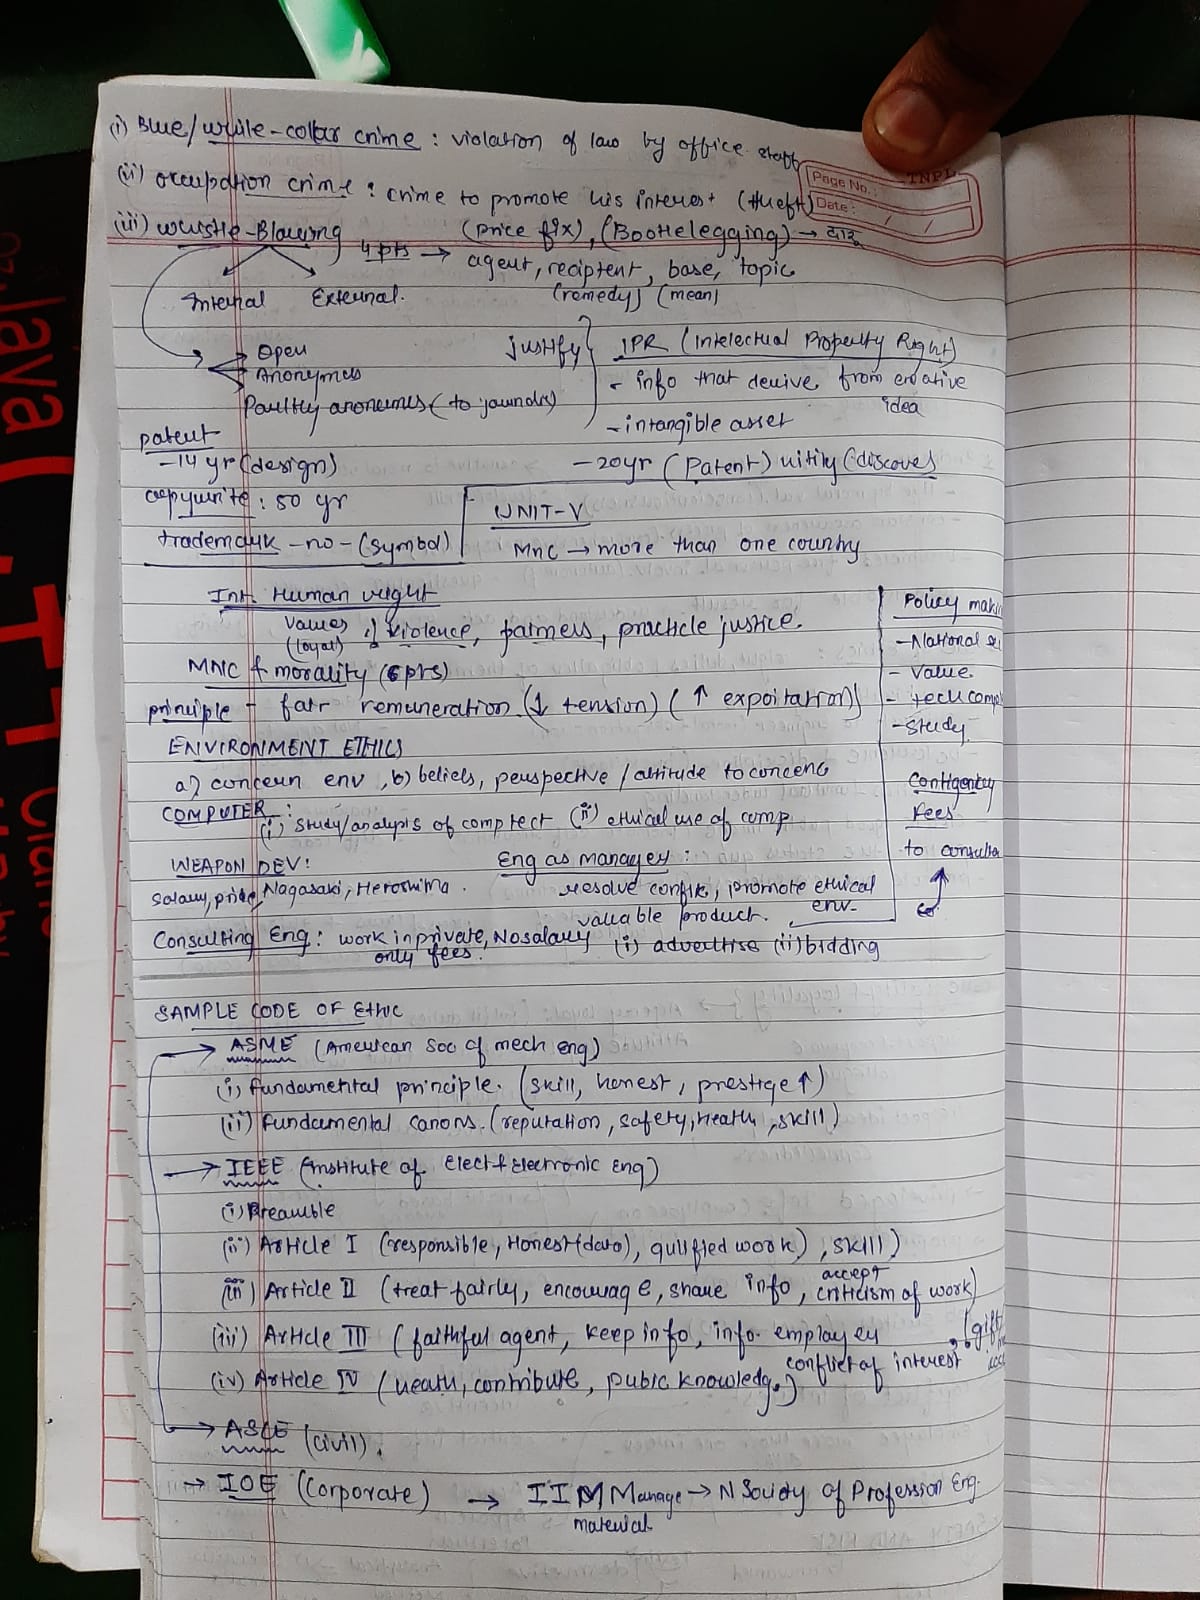 (i) Blue/white-collar crime : violation of law by office staff
(ii) occupation crime : crime to promote his interest (theft)
Page No.:
TNPL
Date: / /
(iii) whistle-Blowing
(Price fix), (Bootelegging) → दारू
4 pts → agent, recipient, base, topic
(remedy) (mean)
Internal External.
Open
Anonymes
Paultly anonemes (to journalis)
justify
IPR (Intelectual Property Right)
- info that derive from creative idea
- intangible asset
patent
- 14 yr (design)
- 20yr (Patent) utility (discoves
copywrite : 50 yr
trademark - no - (symbol)
UNIT-V
MNC → more than one country
Int. Human right
values (loyal) : violence, fairness, practicle justice.
MNC & morality (6 pts)
principle - fair remuneration (↓ tension) (↑ expoitation)
Policy maki
- National se
- Value.
- tech comp
- Study.
ENVIRONMENT ETHICS
a) concern env , b) beliels, perspective / attitude to concenc
COMPUTER :
(i) Study/analysis of comp tect (ii) ethical use of comp
Contigentcy
Fees
to consulta
WEAPON DEV:
Salary, pride, Nagasaki, Heroshima.
Eng as manager :
resolve conflik, promote ethical env.
valuable product.
Consulting Eng : work in private, No salary only fees. (i) advertise (ii) bidding
SAMPLE CODE OF Ethic
→ ASME (American Soc of mech eng)
(i) fundamental principle. (skill, honest, prestige ↑)
(ii) fundamental canons. (reputation, safety, health, skill)
→ IEEE (Institute of elect & electronic Eng)
(i) Preamble
(ii) Article I (responsible, Honest (data), qulified work), skill)
(iii) Article II (treat fairly, encourage, share info, accept criticism of work)
(iii) Article III (faithful agent, keep info, info. employey conflict of interest, (gift
(iv) Article IV (health, contribute, pubic knowledg.)
→ ASCE (civil).
→ IOE (Corporate) → IIM Manage → N Society of Profession Eng.
material